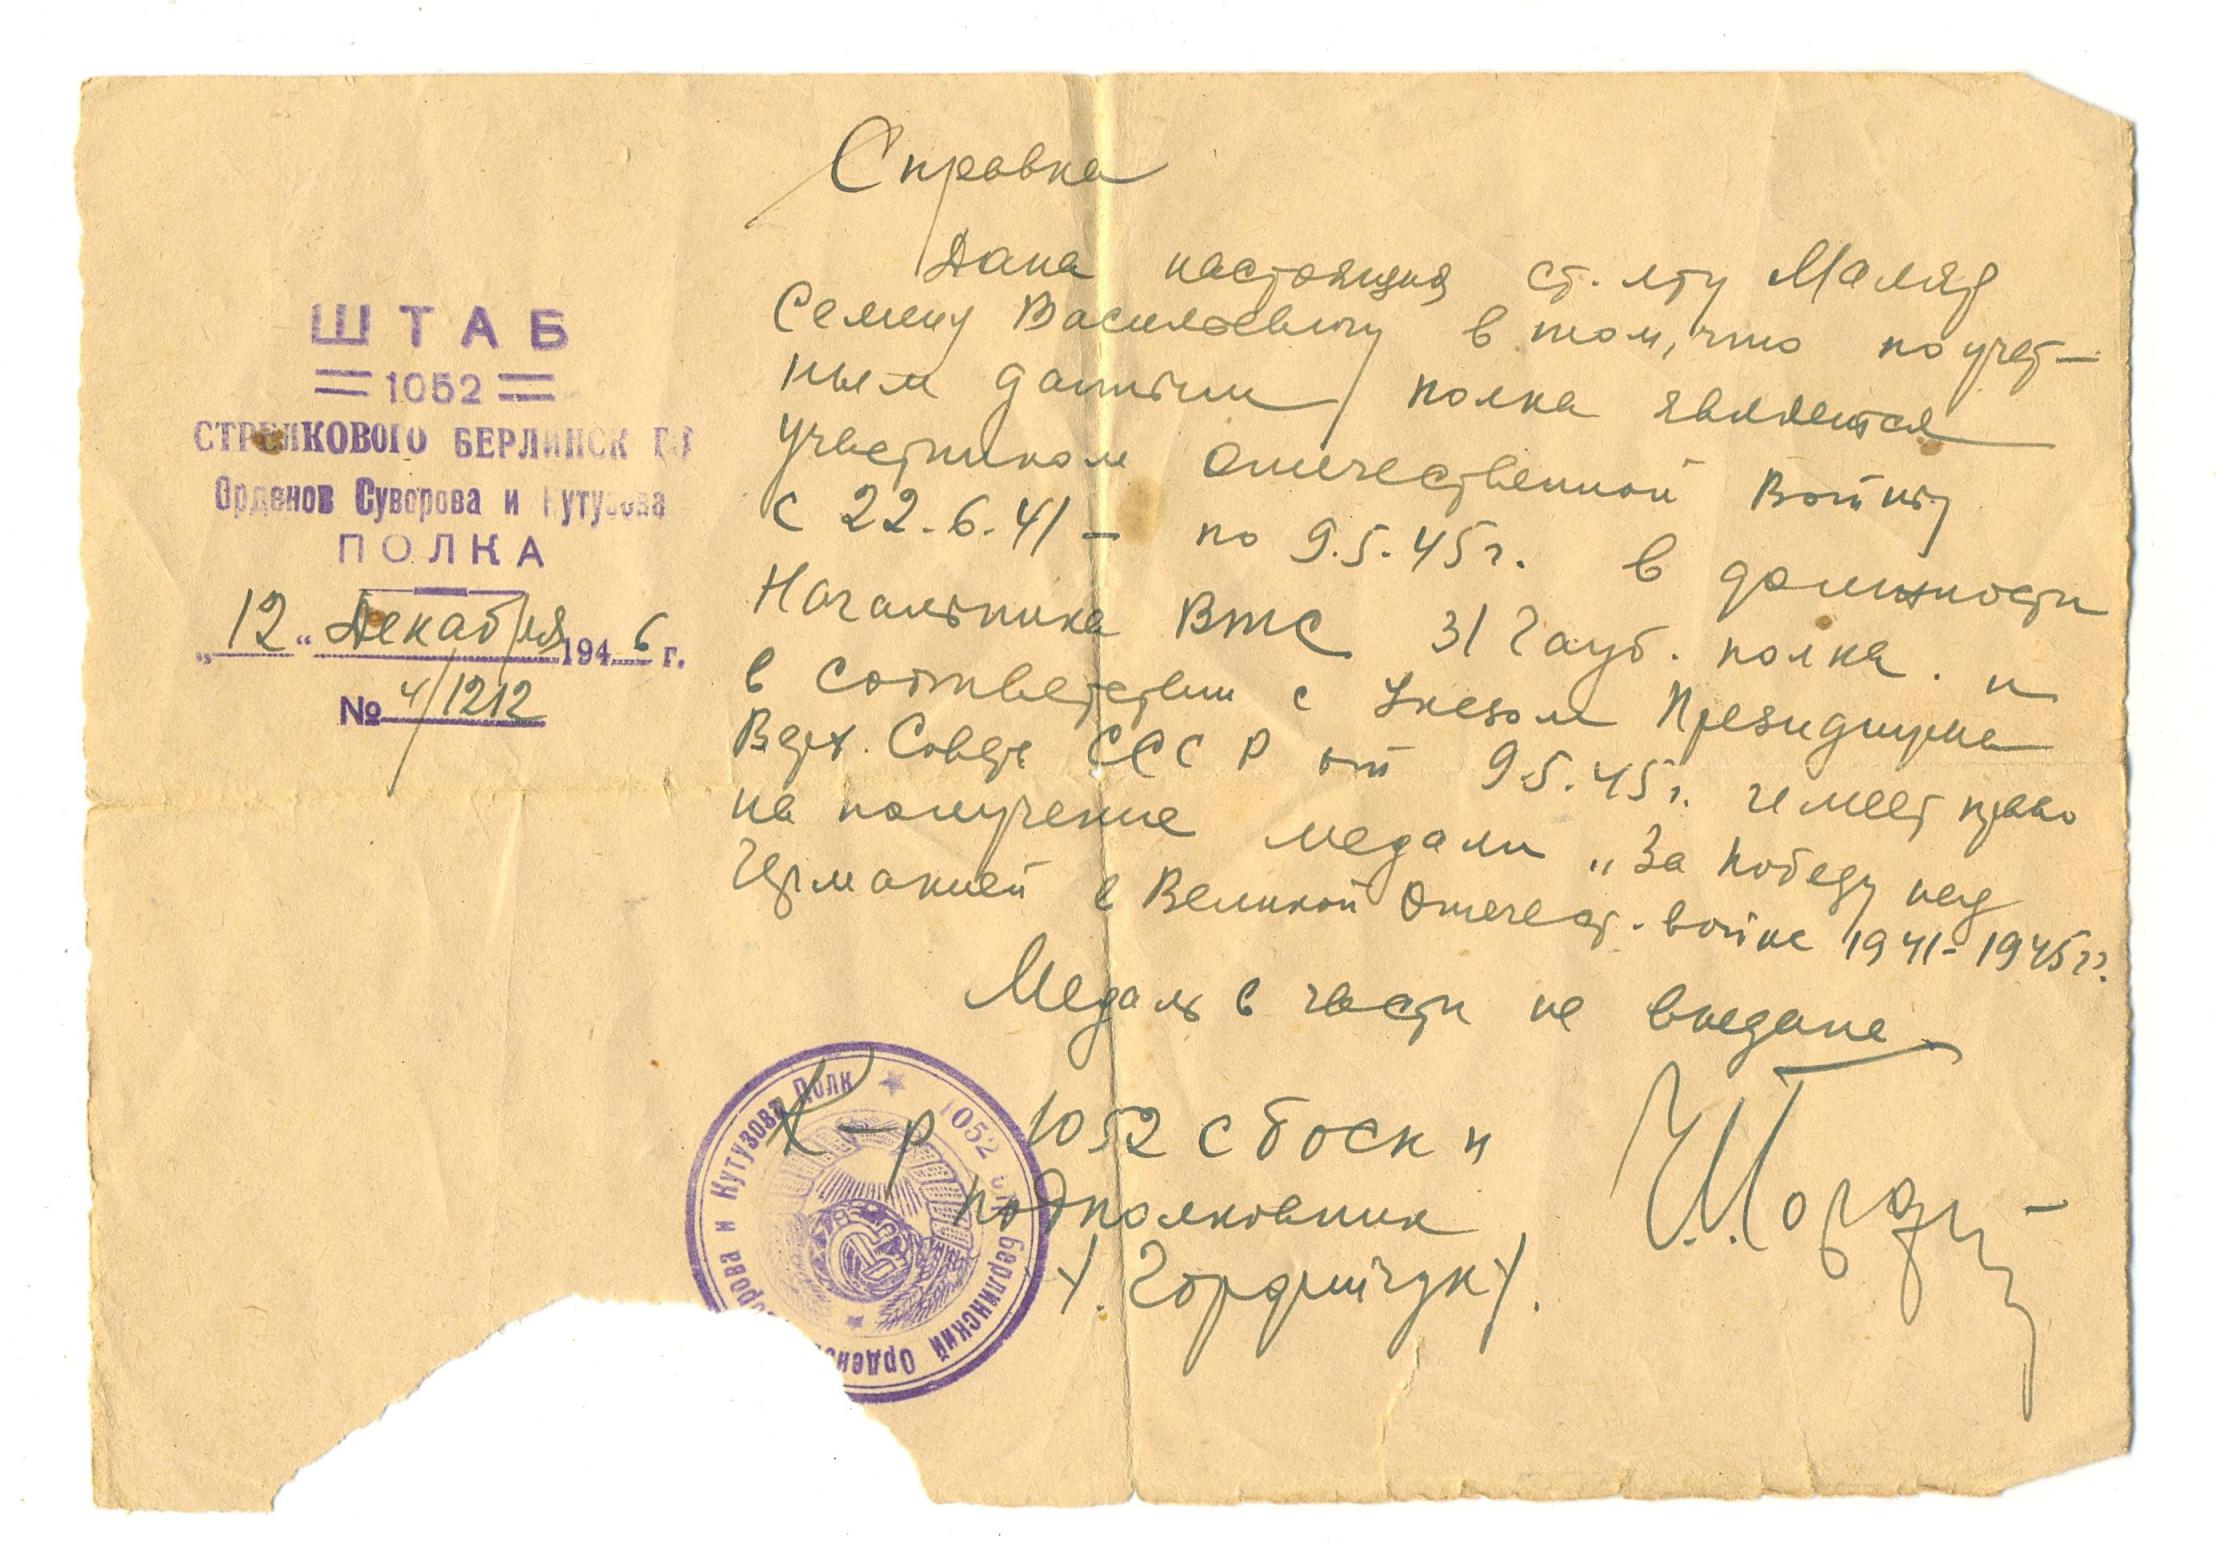 ШТАБ
1052
СТРЕЛКОВОГО БЕРЛИНСК
Орденов Суворова и Кутузова
ПОЛКА
„12“ Декабря 1946 г.
№ 4/1212
Справка
Дана настоящая ст. л-ту Маляр
Семену Васильевичу в том, что по учет-
ным данным полка является
участником Отечественной Войны
с 22.6.41 – по 9.5.45г. в должности
Начальника ВТС 31 Гауб. полка. и
в соответствии с Указом Президиума
Верх. Совета СССР от 9.5.45г. имеет право
на получение медали „За победу над
Германией в Великой Отечест. войне 1941-1945гг.
Медаль в части не выдана
К-р 1052 с б о с к п
подполковник
/. Гордейчук/.
1052 Берлинский Ордено рова и Кутузова Полк